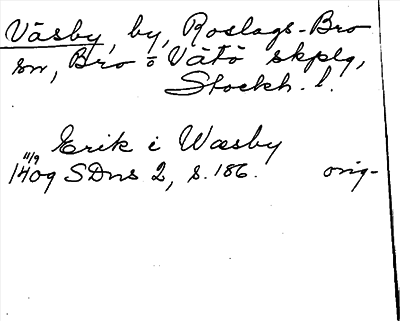 Väsby, by, Roslags-Bro
sn, Bro o Vätö skplg,
Stockh. l.
Erik i Wæsby
11/9
1409 SDns 2, s. 186. orig-